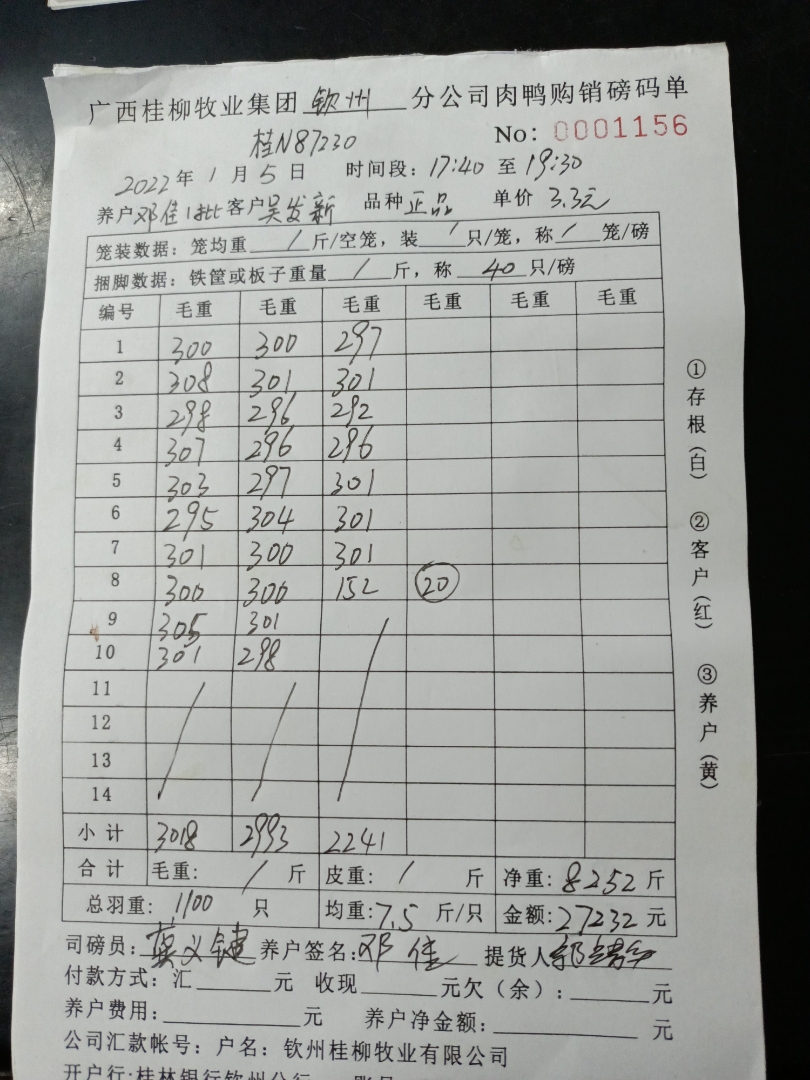 广西桂柳牧业集团 钦州 分公司肉鸭购销磅码单
桂N87230 No: 0001156
2022年1月5日 时间段: 17:40 至 19:30
养户邓佳1批 客户吴发新 品种正品 单价 3.3元
笼装数据: 笼均重 / 斤/空笼, 装 / 只/笼, 称 / 笼/磅
捆脚数据: 铁筐或板子重量 / 斤, 称 40 只/磅
编号 毛重 毛重 毛重 毛重 毛重 毛重
1 300 300 297
2 308 301 301
3 298 296 292
4 307 296 296
5 303 297 301
6 295 304 301
7 301 300 301
8 300 300 152 20
9 305 301
10 301 298
11
12
13
14
小计 3018 2993 2241
合计 毛重: / 斤 皮重: / 斤 净重: 8252 斤
总羽重: 1100 只 均重: 7.5 斤/只 金额: 27232 元
司磅员: 莫义键 养户签名: 邓佳 提货人
付款方式: 汇 元 收现 元欠(余): 元
养户费用: 元 养户净金额: 元
公司汇款帐号: 户名: 钦州桂柳牧业有限公司
开户行:桂林银行钦州分行
①存根(白) ②客户(红) ③养户(黄)